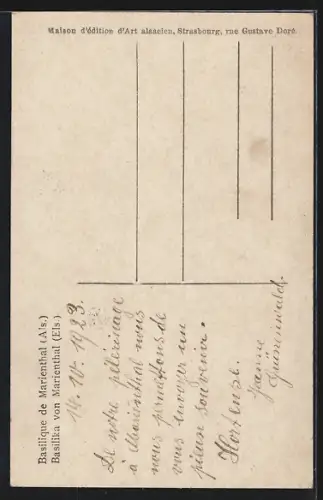 Maison d'édition d'Art alsacien, Strasbourg, rue Gustave Doré.
Basilique de Marienthal (Als.)
Basilika von Marienthal (Els.)
14. IV. 1923.
De notre pélerinage
à Marienthal nous
nous permettons de
vous envoyer un
pieux souvenir.
Hortense.
Jeanne